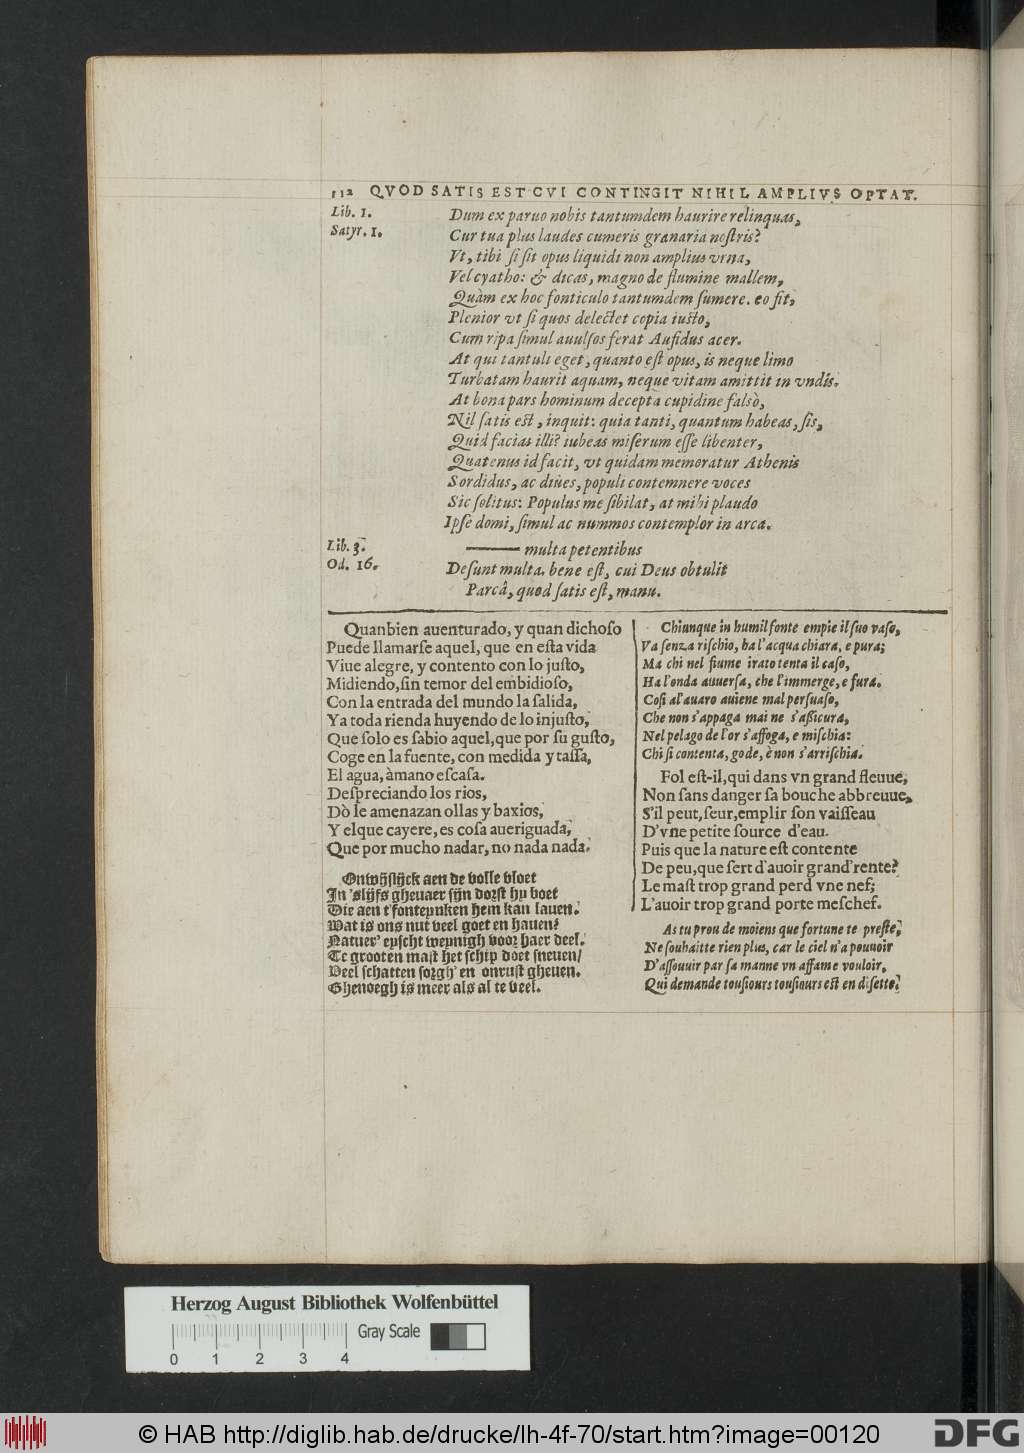 112 QVOD SATIS EST CVI CONTINGIT NIHIL AMPLIVS OPTAT.
Lib. 1.
Satyr. 1.
Dum ex paruo nobis tantumdem haurire relinquas,
Cur tua plus laudes cumeris granaria nostris?
Vt, tibi si sit opus liquidi non amplius vrna,
Vel cyatho: & dicas, magno de flumine mallem,
Quàm ex hoc fonticulo tantumdem sumere. eo fit,
Plenior vt si quos delectet copia iusto,
Cum ripa simul auulsos ferat Aufidus acer.
At qui tantuli eget, quanto est opus, is neque limo
Turbatam haurit aquam, neque vitam amittit in vndis.
At bona pars hominum decepta cupidine falsò,
Nil satis est, inquit: quia tanti, quantum habeas, sis,
Quid facias illi? iubeas miserum esse libenter,
Quatenus id facit, vt quidam memoratur Athenis
Sordidus, ac diues, populi contemnere voces
Sic solitus: Populus me sibilat, at mihi plaudo
Ipse domi, simul ac nummos contemplor in arca.
Lib. 3.
Od. 16.
——— multa petentibus
Desunt multa. bene est, cui Deus obtulit
Parcâ, quod satis est, manu.
Quanbien auenturado, y quan dichoso
Puede llamarse aquel, que en esta vida
Viue alegre, y contento con lo justo,
Midiendo, sin temor del embidioso,
Con la entrada del mundo la salida,
Y a toda rienda huyendo de lo injusto,
Que solo es sabio aquel, que por su gusto,
Coge en la fuente, con medida y tassa,
El agua, à mano escasa.
Despreciando los rios,
Dò le amenazan ollas y baxios,
Y el que cayere, es cosa aueriguada,
Que por mucho nadar, no nada nada.
Onwijslijck aen de volle vloet
In 'slijfs ghevaer sijn dorst hy boet
Die aen t'fonteynken hem kan lauen.
Wat is ons nut veel goet en hauen?
Natuer' eyscht weynigh voor haer deel.
Te grooten mast het schip doet sneuen/
Veel schatten sorgh' en onrust gheuen.
Ghenoegh is meer als al te veel.
Chiunque in humil fonte empie il suo vaso,
Va senza rischio, ha l'acqua chiara, e pura;
Ma chi nel fiume irato tenta il caso,
Ha l'onda auuersa, che l'immerge, e fura.
Cosi al'auaro auiene mal persuaso,
Che non s'appaga mai ne s'assicura,
Nel pelago de l'or s'affoga, e mischia:
Chi si contenta, gode, è non s'arrischia.
Fol est-il, qui dans vn grand fleuue,
Non sans danger sa bouche abbreuue,
S'il peut, seur, emplir son vaisseau
D'vne petite source d'eau.
Puis que la nature est contente
De peu, que sert d'auoir grand' rente?
Le mast trop grand perd vne nef;
L'auoir trop grand porte meschef.
As tu prou de moiens que fortune te preste,
Ne souhaitte rien plus, car le ciel n'a pouuoir
D'assouuir par sa manne vn affame vouloir,
Qui demande tousiours tousiours est en disette.
Herzog August Bibliothek Wolfenbüttel
Gray Scale
0 1 2 3 4
© HAB http://diglib.hab.de/drucke/lh-4f-70/start.htm?image=00120
DFG